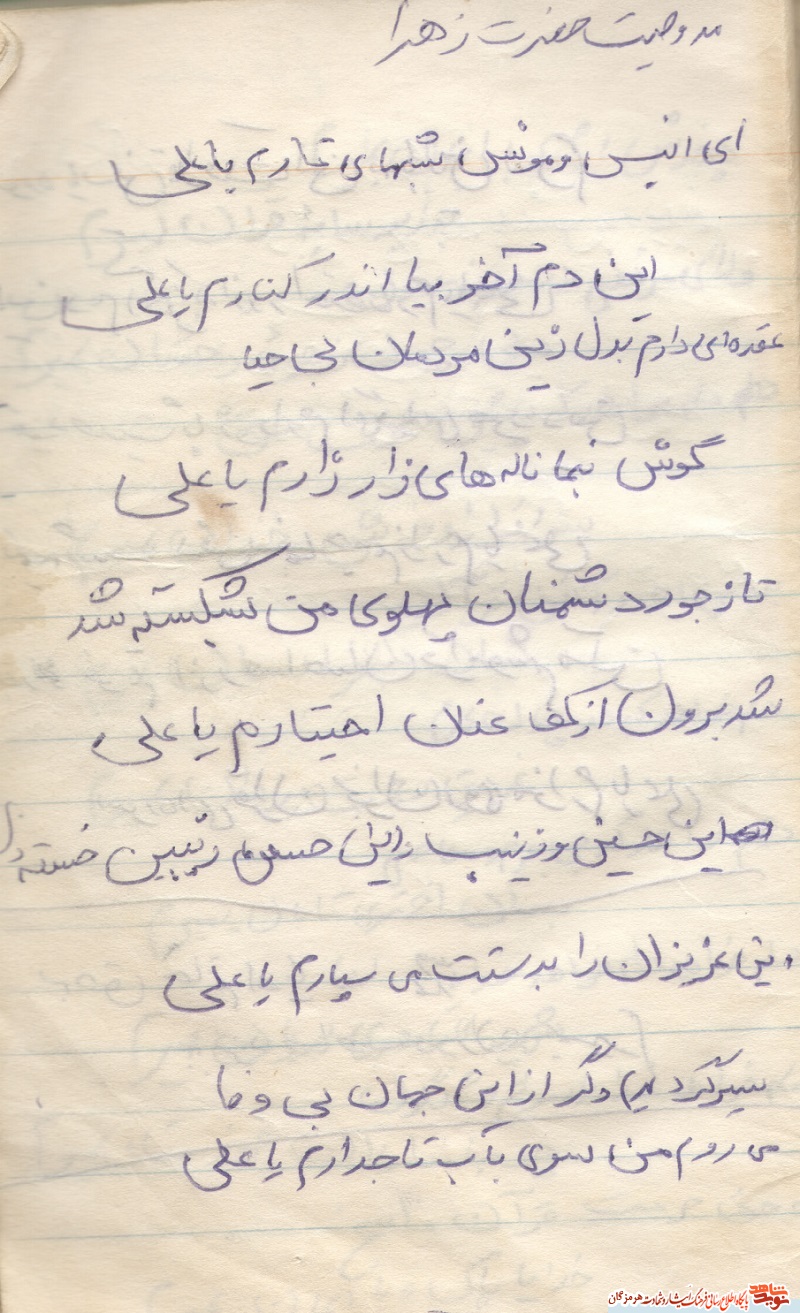 وصیت حضرت زهرا
ای انیس و مونس شبهای تارم یا علی
این دم آخر بیا اندر کنارم یا علی
عقده‌ای دارم بدل زین مردمان بی حیا
گوش بنما ناله های زار زارم یا علی
تا ز جور دشمنان پهلوی من بشکسته شد
شد برون از کف عنان اختیارم یا علی
این حسین و زینب و این حسن خسته
این عزیزان را بدستت می سپارم یا علی
سیر گردیدم دگر از این جهان بی وفا
می روم من سوی باب تاجدارم یا علی
نوید شاهد
پایگاه اطلاع رسانی فرهنگ ایثار و شهادت هرمزگان